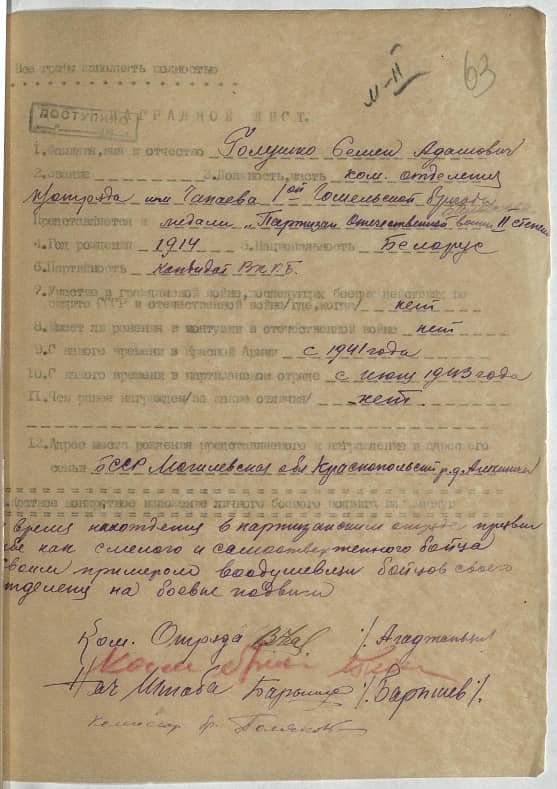 63
м-II
Все графы заполнять полностью
ПОСТУПИЛО
НАГРАДНОЙ ЛИСТ.
1. Фамилия, имя и отчество Голушко Семен Адамович
2. Звание 3. Должность, часть ком. отделения
п/отряда им Чапаева 1ой Гомельской бригады
Представляется к медали „Партизан Отечественной войны II степени
4. Год рождения 1914 5. Национальность Беларус
6. Партийность кандидат ВКПБ.
7. Участие в гражданской войне, последующих боевых действиях по
защите СССР и отечественной войне/где, когда/ нет
8. Имеет ли ранения и контузии в отечественной войне нет
9. С какого времени в Красной Армии с 1941 года
10. С какого времени в партизанском отряде с июля 1943 года
11. Чем ранее награжден/за какие отличия/ нет.
12. Адрес места рождения представляемого к награждению и адрес его
семьи БССР Могилевская обл Краснопольский р.д.
Краткое конкретное изложение личного боевого подвига или заслуг
время нахождения в партизанским отряде проявил
бе как смелого и самоотверженного бойца
Своим примером воодушевлял бойцов своего
отделения на боевые подвиги
Ком. Отряда /Агаджаньян
Нач Штаба /Барышев/.
комиссар бр.